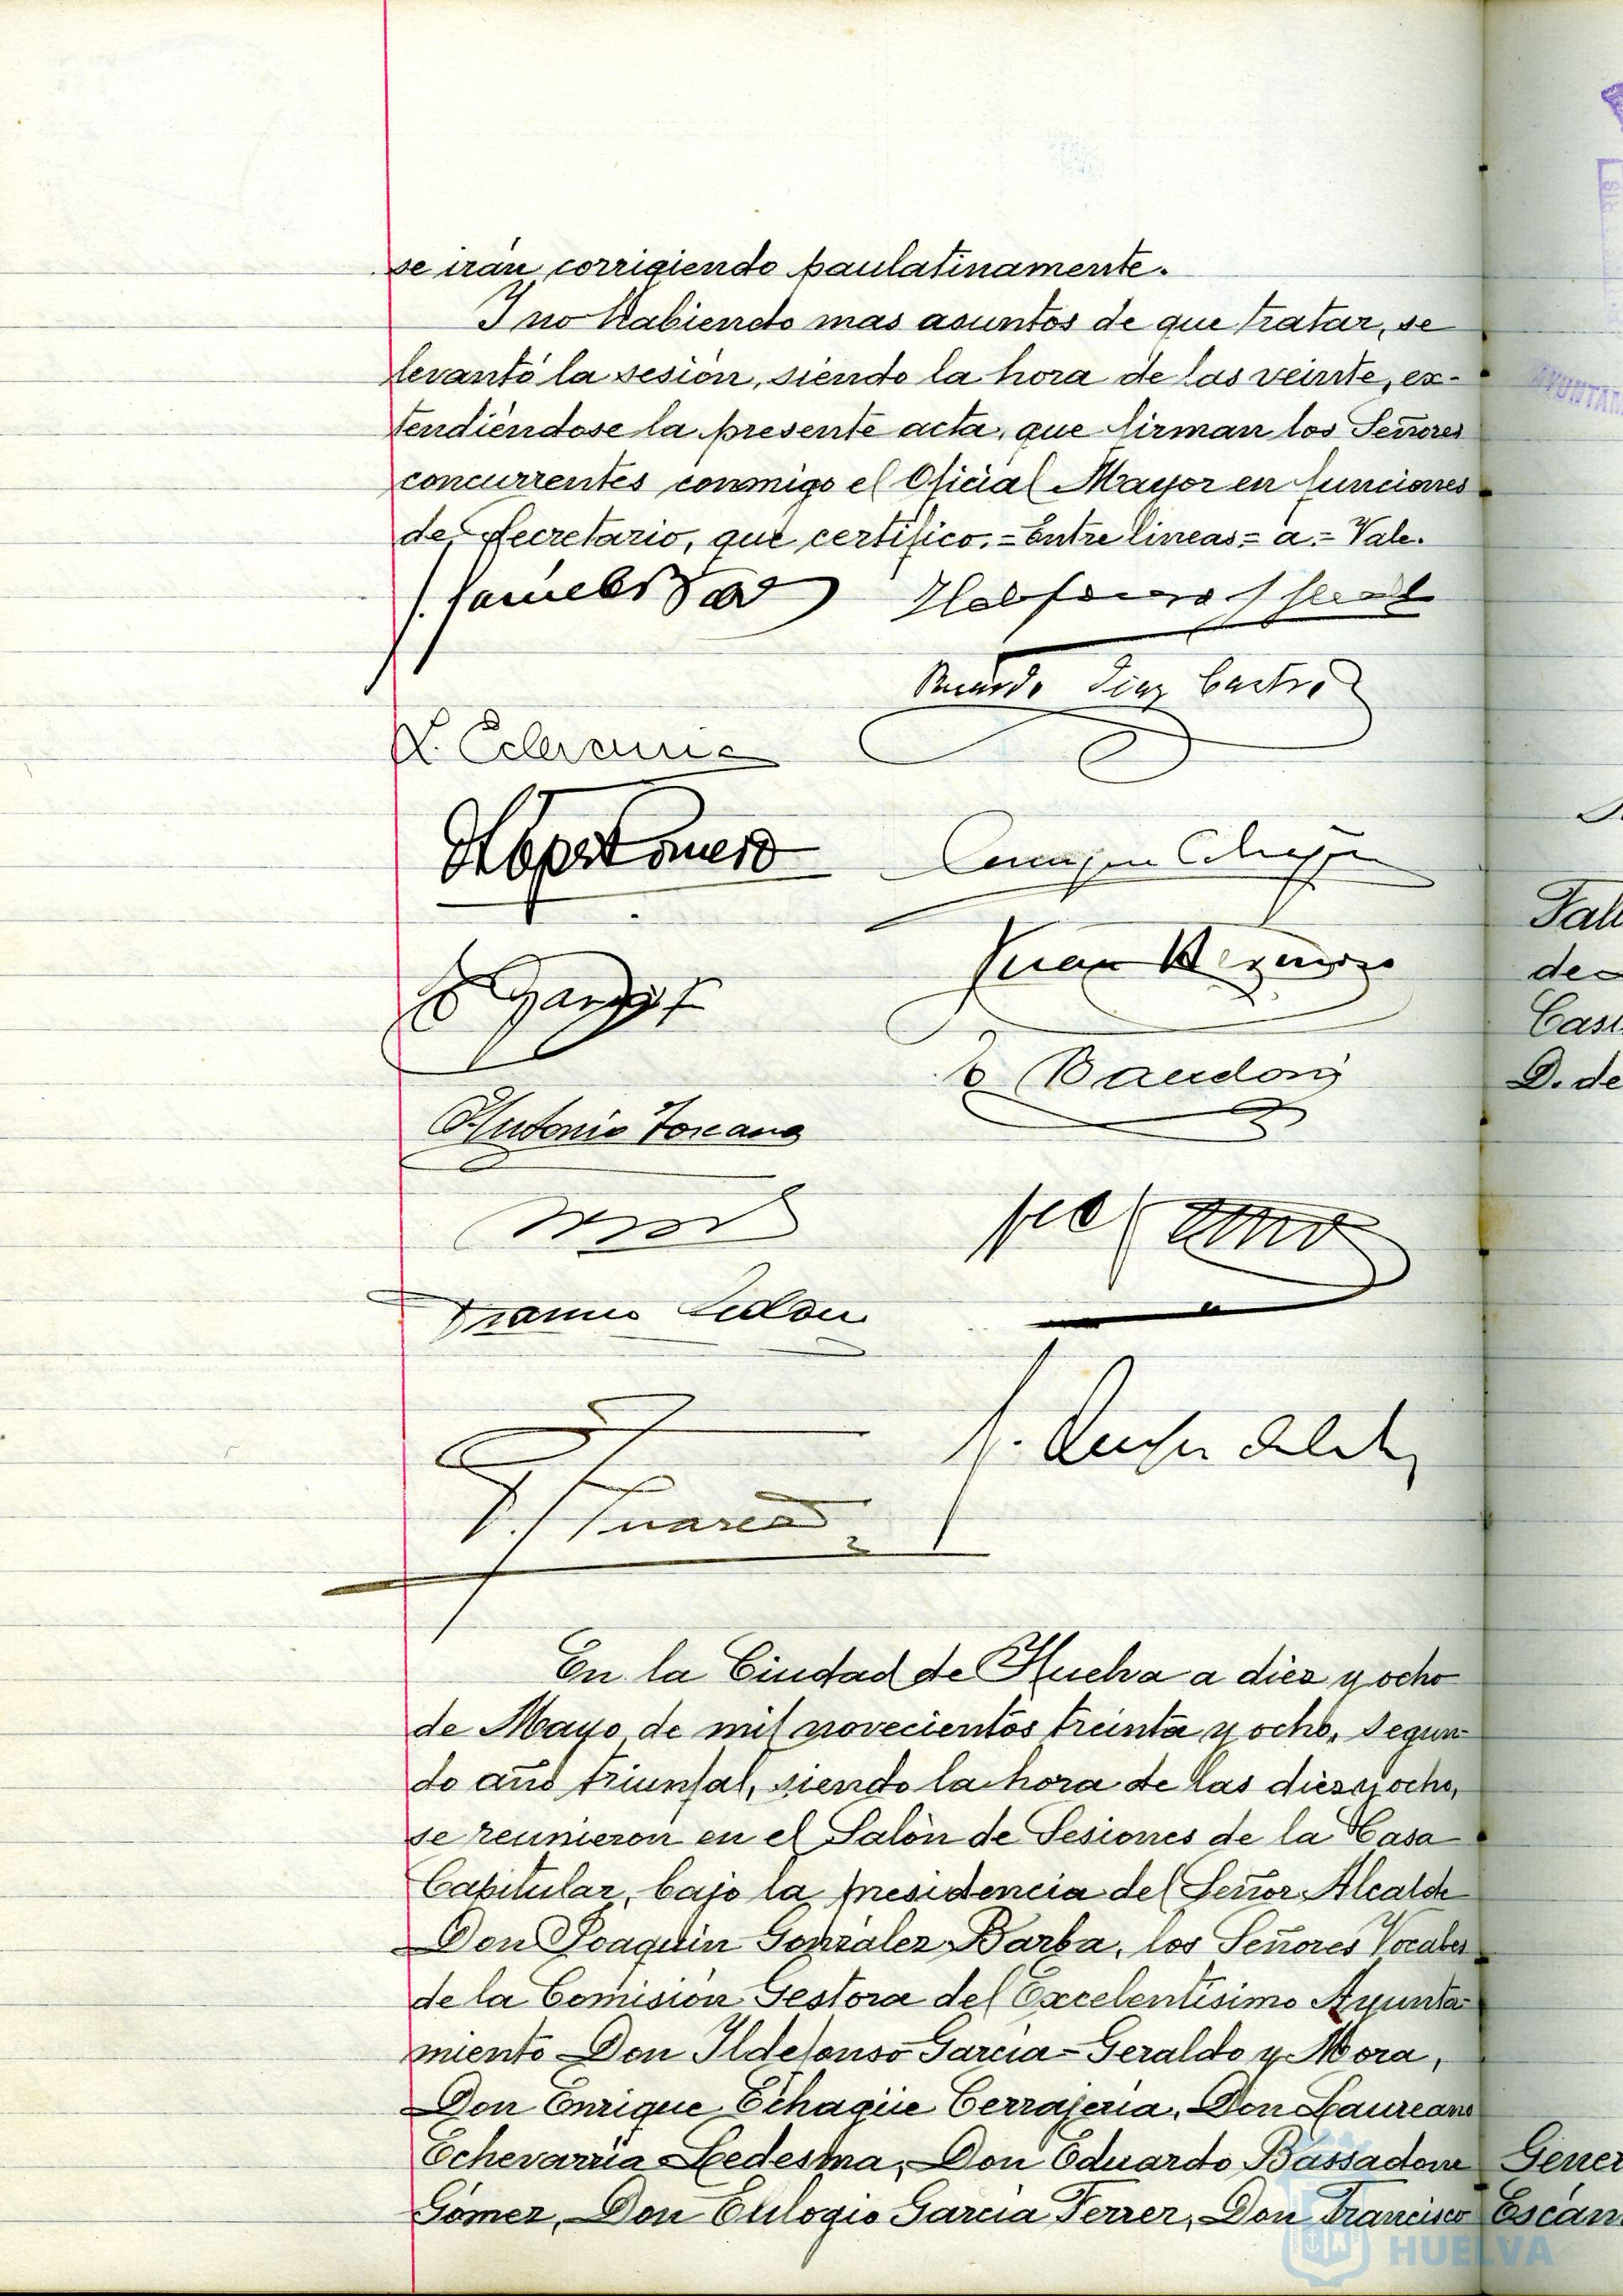 se irán corrigiendo paulatinamente.
Y no habiendo mas asuntos de que tratar, se
levantó la sesión, siendo la hora de las veinte, ex-
tendiéndose la presente acta, que firman los Señores
concurrentes conmigo el Oficial Mayor en funciones
de Secretario, que certifico. = Entre lineas = a = Vale.
Ricardo Diaz Castro
L. Echevarria
Enrique Echagüe
Juan
Antonio Toscano
En la Ciudad de Huelva a diez y ocho
de Mayo de mil novecientos treinta y ocho, segun-
do año triunfal, siendo la hora de las diez y ocho,
se reunieron en el Salón de Sesiones de la Casa
Capitular, bajo la presidencia del Señor Alcalde
Don Joaquin González Barba, los Señores Vocales
de la Comisión Gestora del Excelentísimo Ayunta-
miento Don Ildefonso Garcia-Geraldo y Mora,
Don Enrique Echagüe Cerrajeria, Don Laureano
Echevarria Ledesma, Don Eduardo Bassadone
Gómez, Don Eulogio Garcia Ferrer, Don Francisco
HUELVA
D. de